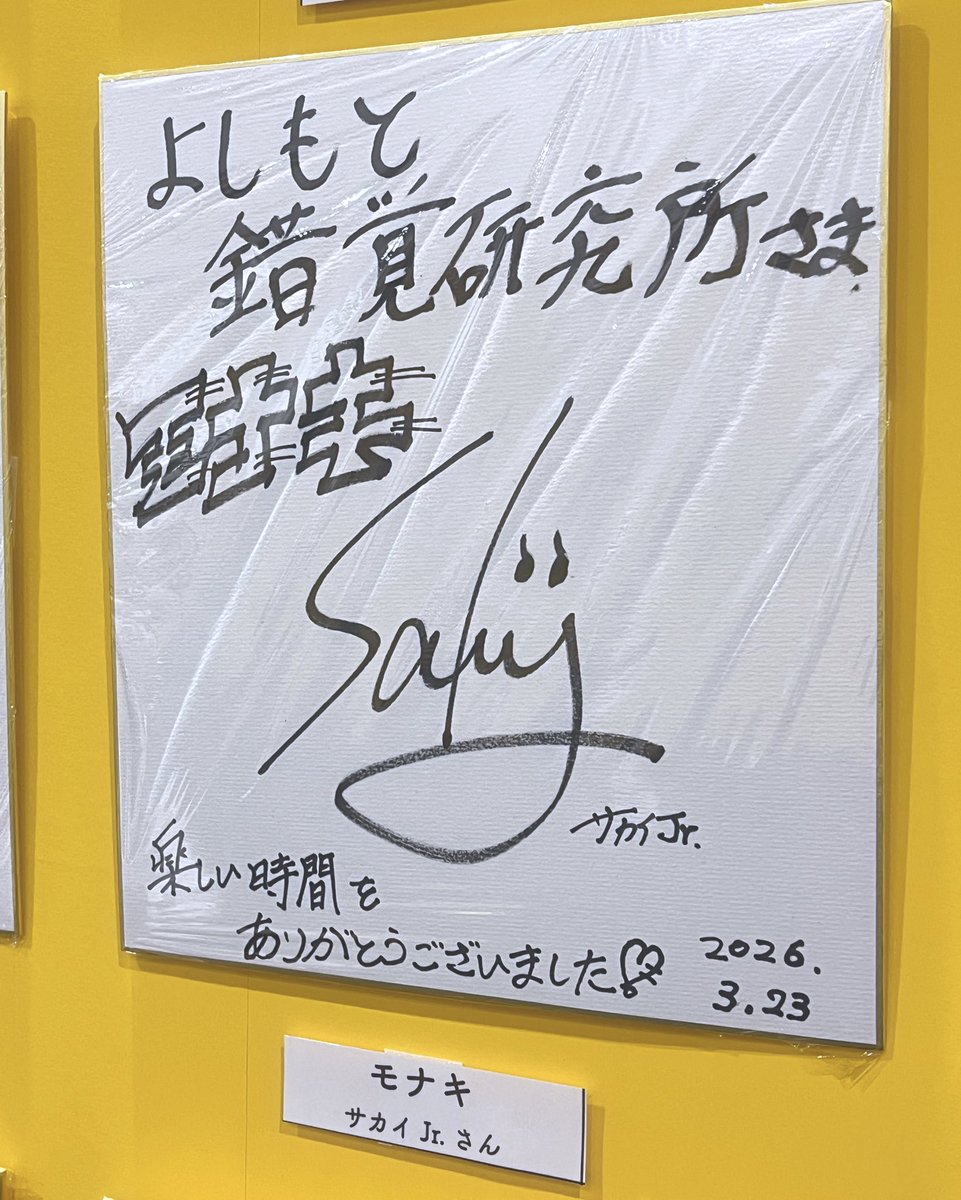 よしもと
錯覚研究所さま
サカイJr.
楽しい時間を
ありがとうございました
2026.
3.23
モナキ
サカイ Jr. さん